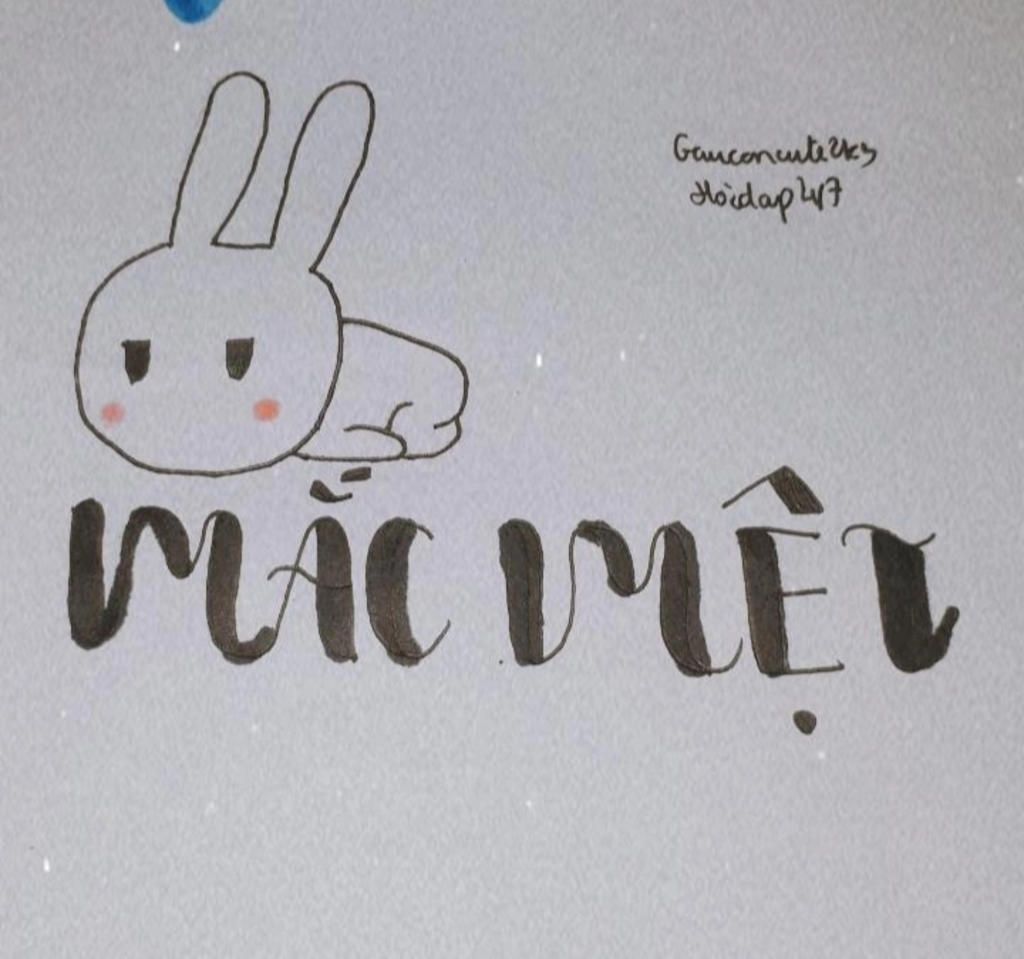 Gauconcute2k3
Hoidap247
MẮC MỆT